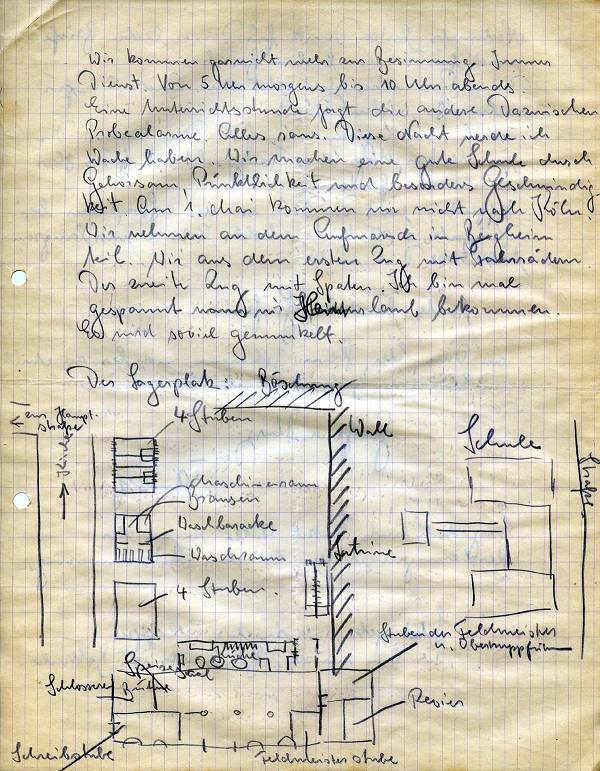 Wir kommen garnicht mehr zur Besinnung. Immer
Dienst. Von 5 Uhr morgens bis 10 Uhr abends.
Eine Unterrichtsstunde jagt die andere. Dazwischen
Probealarme. Alles raus. Diese Nacht werde ich
Wache haben. Wir machen eine gute Schule durch
Gehorsam, Pünktlichkeit und besonders Geschwindig-
keit. Am 1. Mai kommen wir nicht nach Köln.
Wir nehmen an dem Aufmarsch in Bergheim
teil. Wir aus dem ersten Zug mit Fahrrädern
Der zweite Zug mit Spaten. Ich bin mal
gespannt wann wir Urlaub bekommen.
Es wird soviel gemunkelt.
Der Lagerplatz: Böschung
← zur Haupt-
straße
Kirche
4 Stuben
Wall
Schule
Straße
Maschinenraum
Brausen
Waschbaracke
Waschraum
Latrine
4 Stuben.
Stuben der Feldmeister
u. Obertruppführer
Küche
Speise
Saal
Schlosserei
Bühne
Revier
Schreibstube
Feldmeisterstube